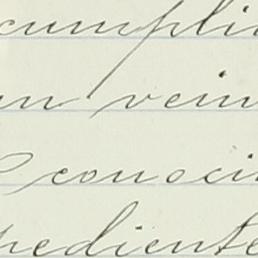 cumpli
un vein
conoci
pediente